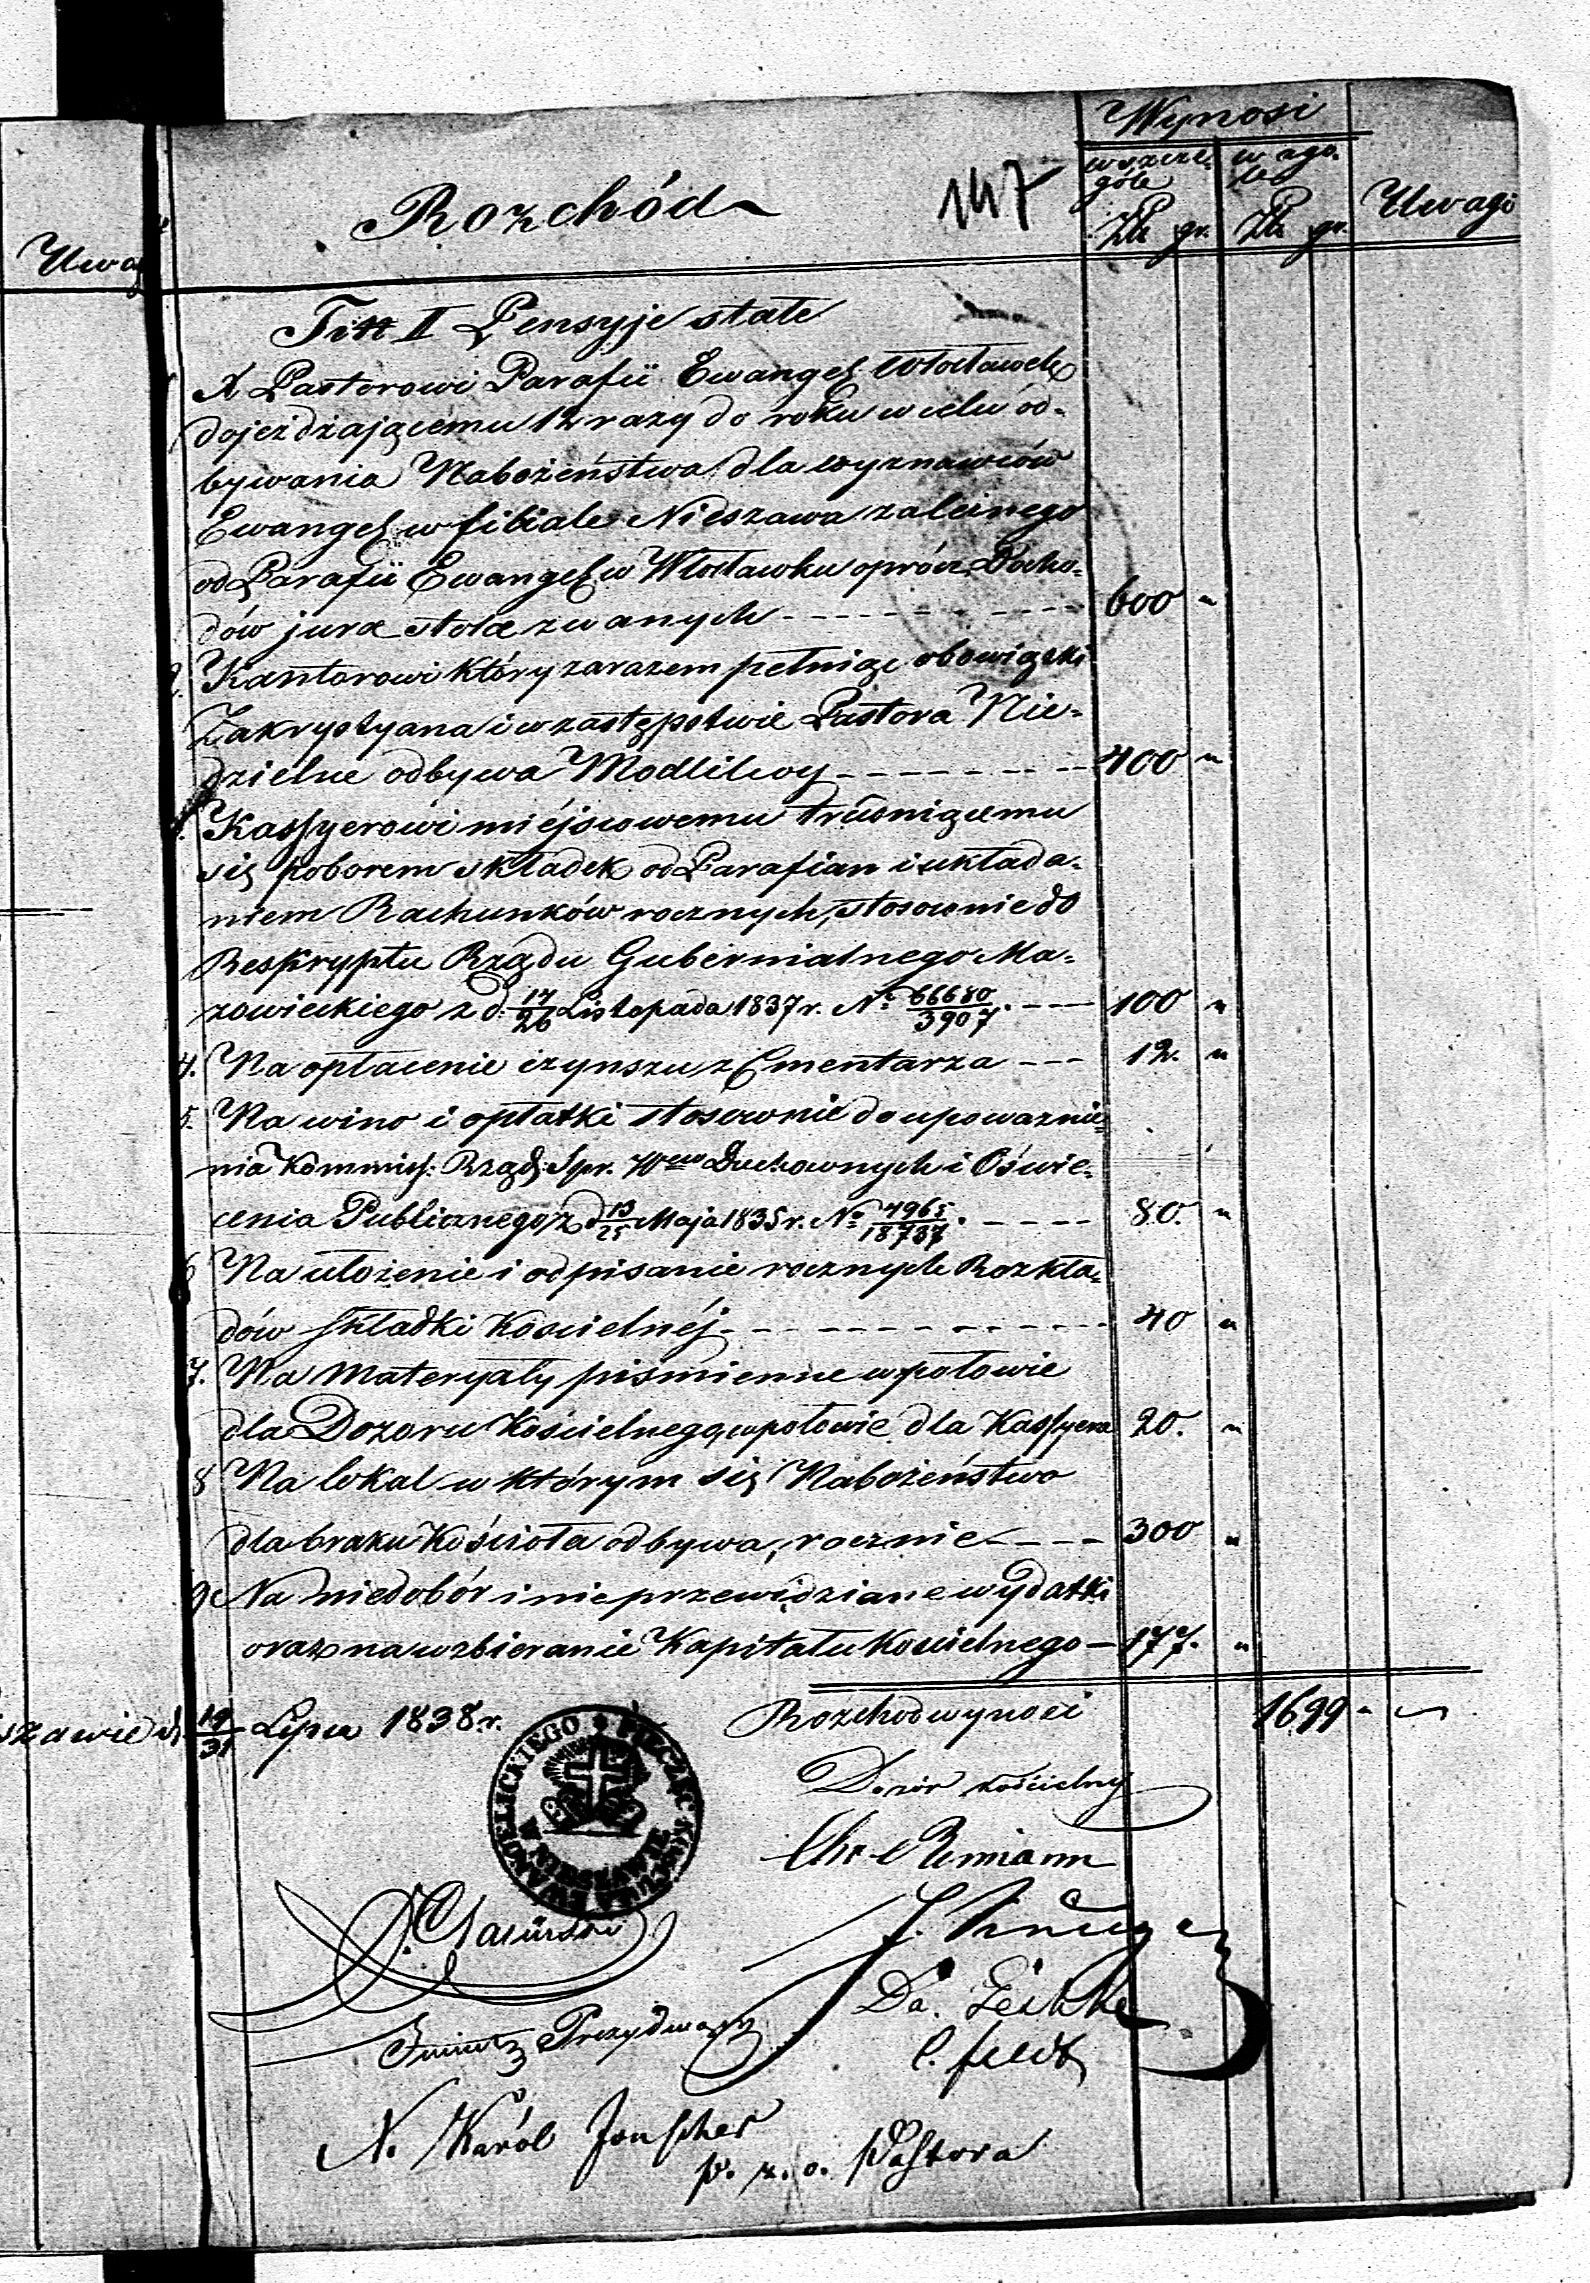 Wynosi
w szcze-
góle
w ogó-
le
Rozchód
147
Uwagi
Złr gr. Złr gr.
Uwag
Titt II Pensyje stałe
1 Pastorowi Parafii Ewangel Włocławek
dojeżdżającemu 12 razy do roku w celu od-
bywania Nabożeństwa dla wyznawców
Ewangel w filiale Nieszawa zależnego
od Parafii Ewangel w Włocławku oprócz Docho-
dów jura stolæ zwanych - - - - - 600 "
2. Kantorowi który zarazem pełniąc obowiązki
Zakrystyana i w zastępstwie Pastora Nie-
dzielne odbywa Modlitwy - - - - - 400 "
Kassyerowi miéjscowemu trudniącemu
się poborem składek od Parafian i układa-
niem Rachunków rocznych, stosownie do
Reskryptu Rządu Gubernialnego Ma-
zowieckiego z d. 14/26 Listopada 1837 r. No 66680/3907. - - - 100 "
4. Na opłacenie czynszu z Cmentarza - - - 12. "
5. Na wino i opłatki stosownie do upoważnie-
nia Kommiss: Rząd: Spr. Wew Duchownych i Oświe-
cenia Publicznego z d 13/25 Maja 1835 r. No 4965/18787. - - - - 80. "
6 Na ułożenie i odpisanie rocznych Rozkła-
dów składki Kościelnéj - - - - - 40 "
7. Na Materyały piśmienne w połowie
dla Dozoru Kościelnego, w połowie dla Kassyera 20. "
8 Na lokal w którym się Nabożeństwo
dla braku Kościoła odbywa, rocznie - - - - 300 "
9 Na niedobór i nieprzewidziane wydatki
oraz na wzbieranie Kapitału Kościelnego - 177. "
szawie d. 19/31 Lipca 1838 r.
Rozchod wynosi 1699 "
EWANGELICKIEGO PIECZĘĆ
W NIESZAWIE
Dozór Kościelny
Chr
J. Krüger
Da. Zeihke
C. feldt
Prezydujący
N. Karól Jonscher
p. z. o. Pastora